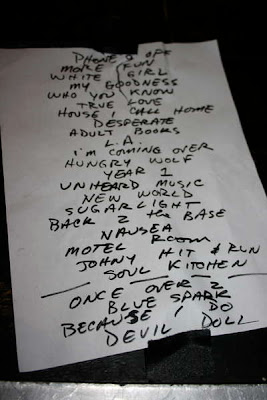 PHONE'S OFF
MORE FUN
WHITE GIRL
MY GOODNESS
WHO YOU KNOW
TRUE LOVE
HOUSE I CALL HOME
DESPERATE
ADULT BOOKS
L.A.
i'm COMING OVER
HUNGRY WOLF
YEAR 1
UNHEARD MUSIC
NEW WORLD
SUGARLIGHT
BACK 2 the BASE
NAUSEA
MOTEL ROOM
JOHNY HIT & RUN
SOUL KITCHEN
ONCE OVER 2
BLUE SPARK
BECAUSE I DO
DEVIL DOLL